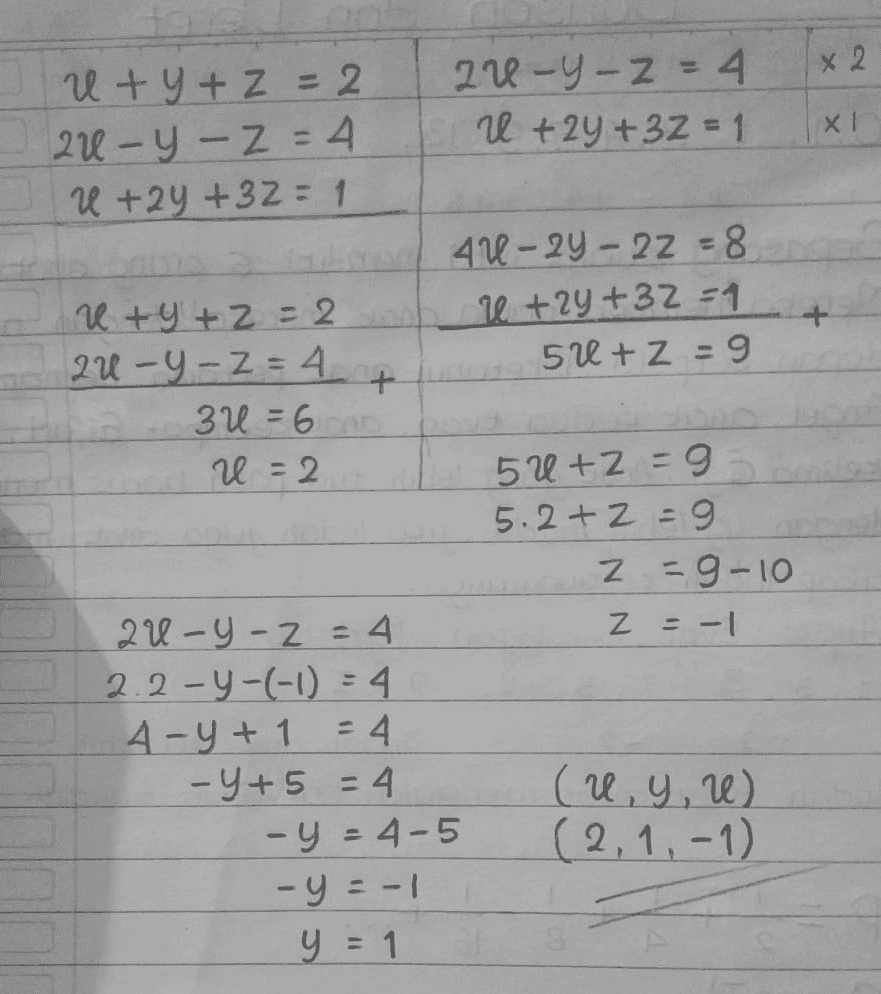 x + y + z = 2
2x - y - z = 4
x + 2y + 3z = 1
x + y + z = 2
2x - y - z = 4 +
3x = 6
x = 2
2x - y - z = 4 | x 2
x + 2y + 3z = 1 | x 1
4x - 2y - 2z = 8
x + 2y + 3z = 1 +
5x + z = 9
5x + z = 9
5.2 + z = 9
z = 9 - 10
z = -1
2x - y - z = 4
2.2 - y - (-1) = 4
4 - y + 1 = 4
-y + 5 = 4
-y = 4 - 5
-y = -1
y = 1
(x, y, x)
(2, 1, -1)